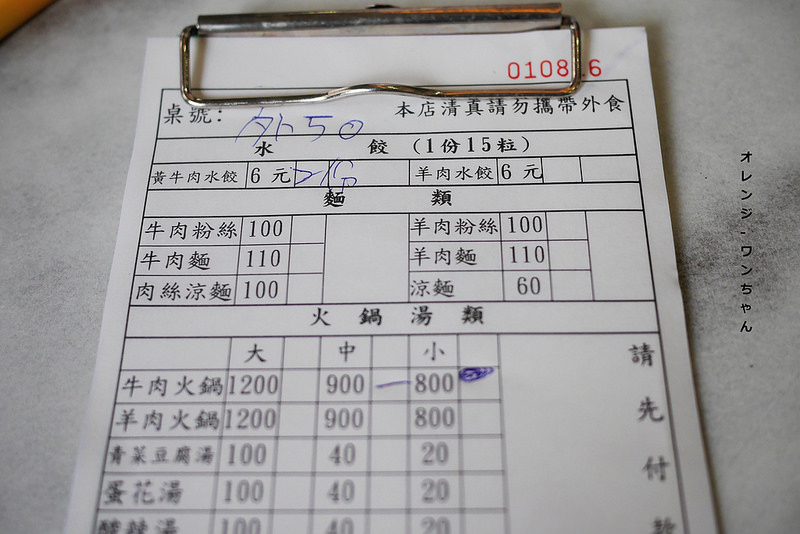 0108 6
桌號: 外50 本店清真請勿攜帶外食
水 餃 (1份15粒)
黃牛肉水餃 6 元 羊肉水餃 6 元
麵 類
牛肉粉絲 100 羊肉粉絲 100
牛肉麵 110 羊肉麵 110
肉絲涼麵 100 涼麵 60
火 鍋 湯 類
大 中 小
牛肉火鍋 1200 900 一 800
羊肉火鍋 1200 900 800
青菜豆腐湯 100 40 20
蛋花湯 100 40 20
酸辣湯 100 40 20
請先付款
オレンジ-ワンちゃん